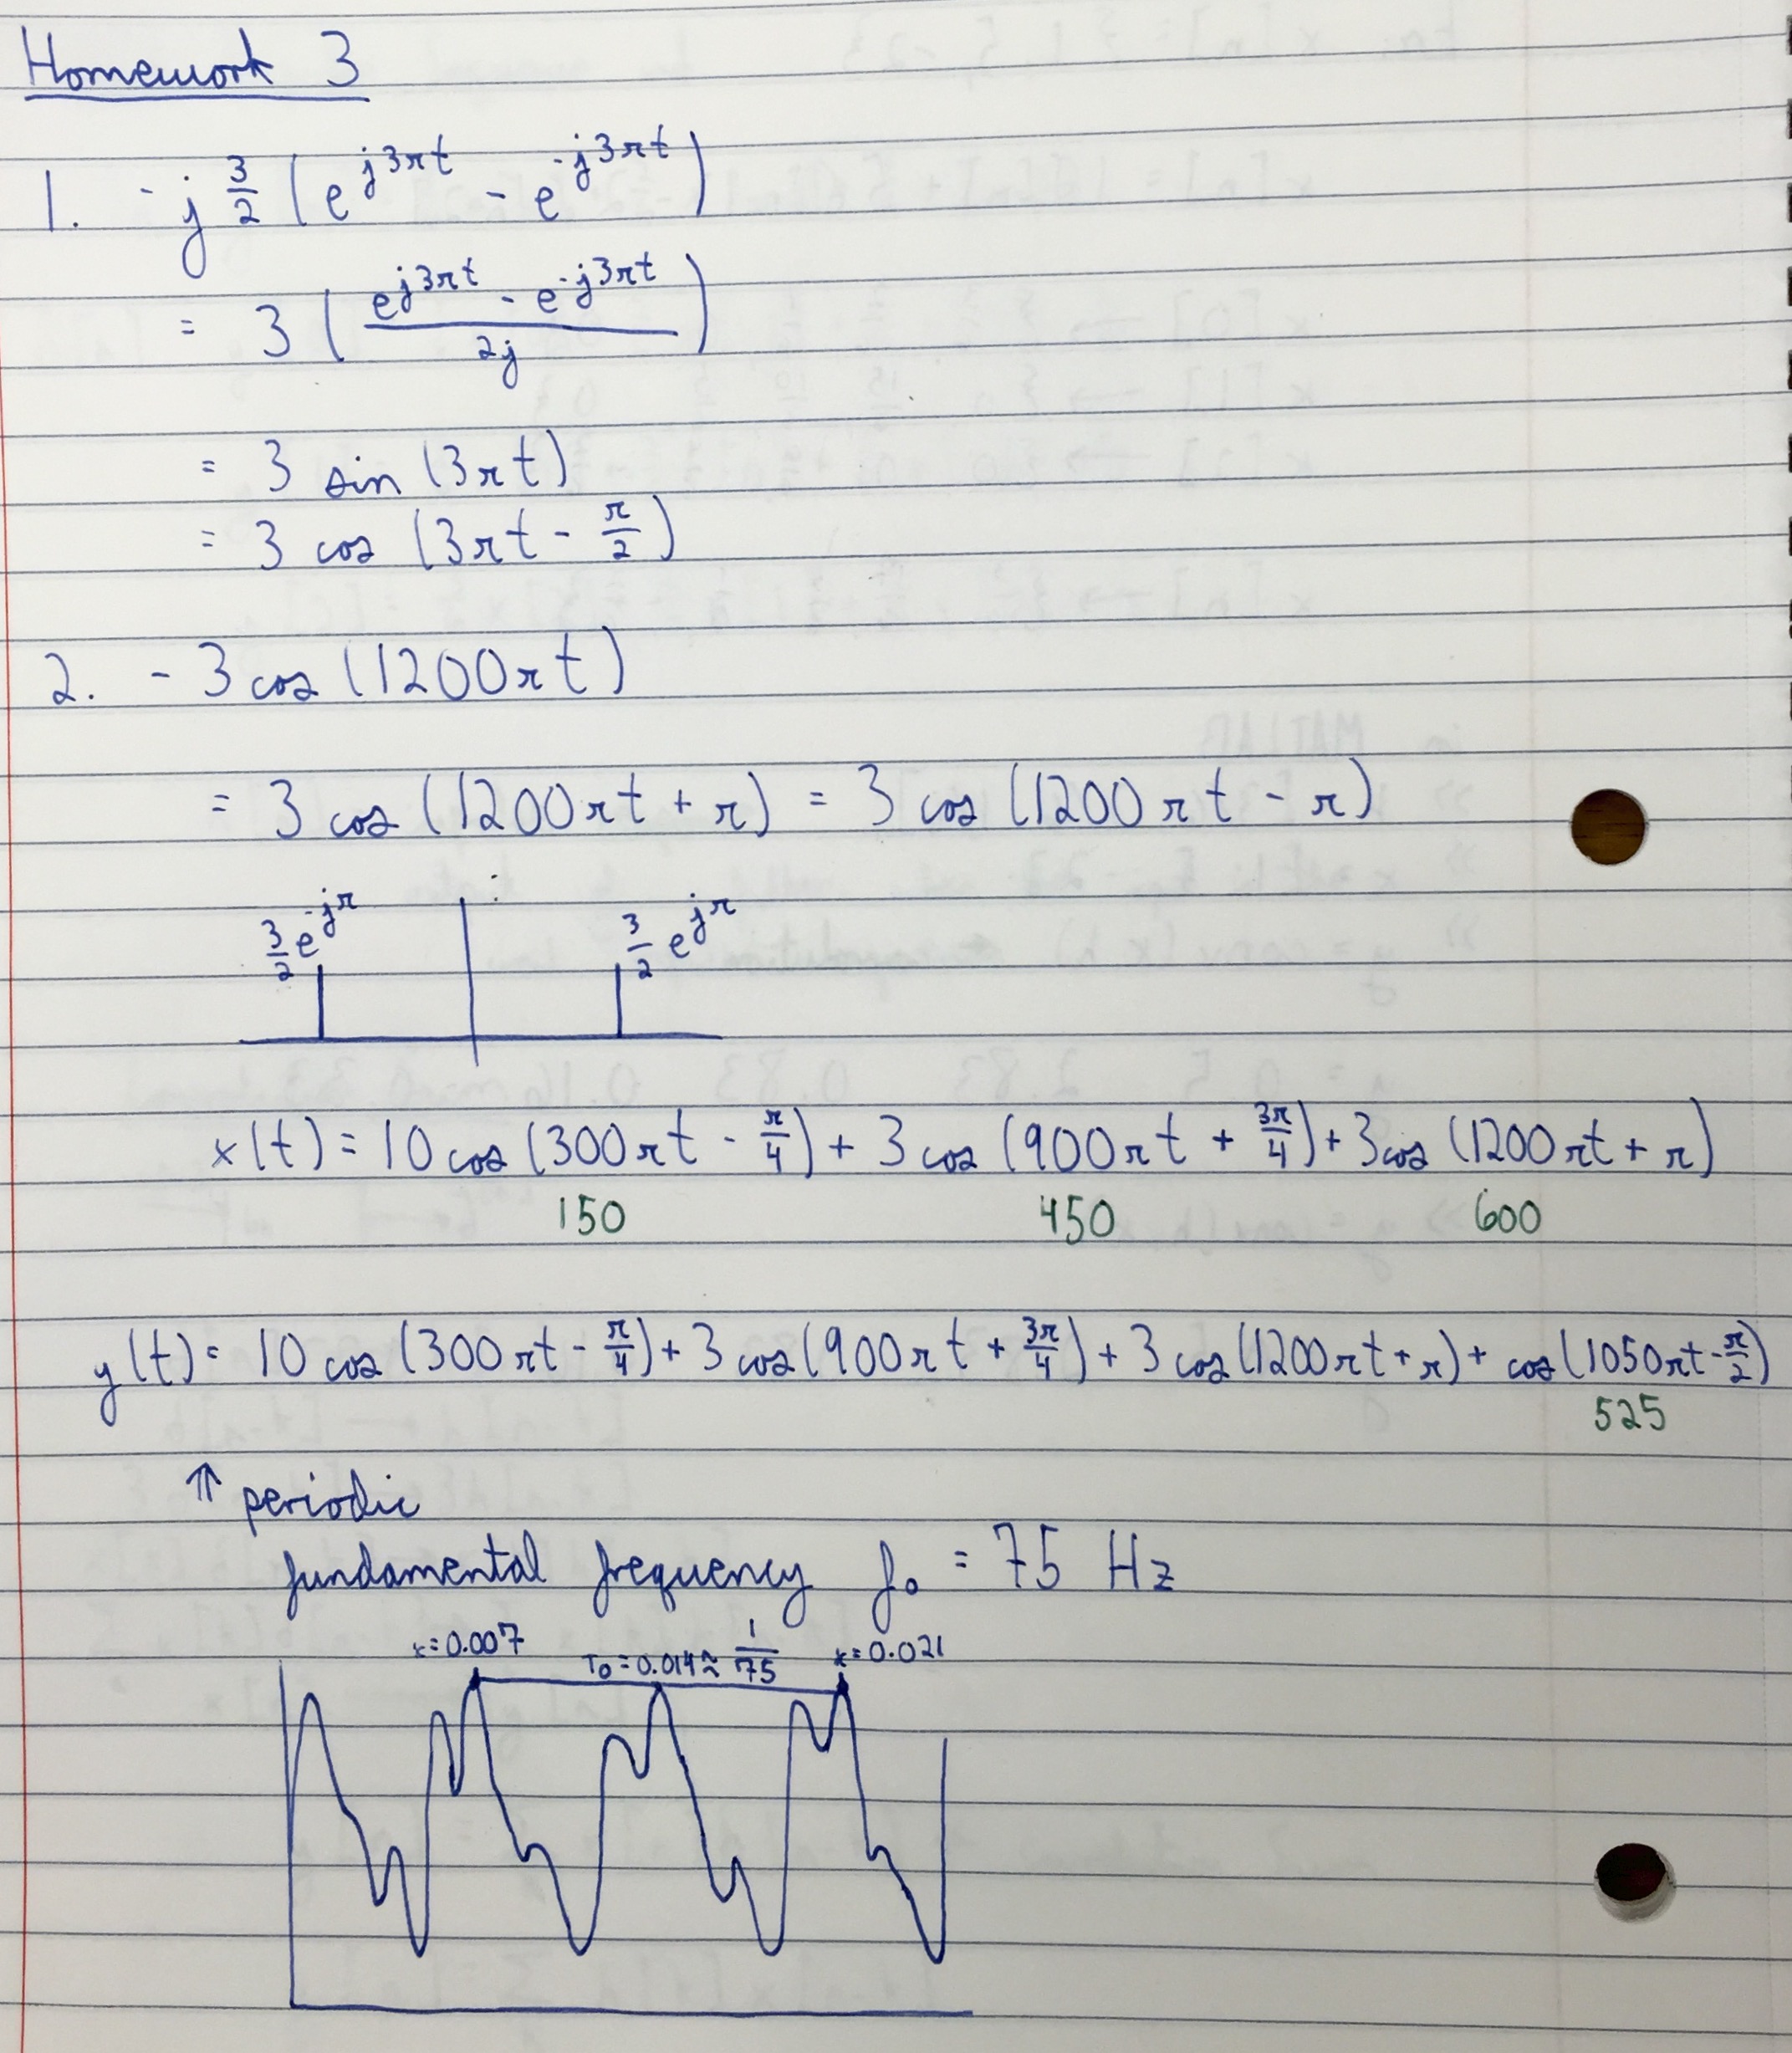 Homework 3
1. -j 3/2 (e^{j3πt} - e^{-j3πt})
= 3 ( (e^{j3πt} - e^{-j3πt}) / 2j )
= 3 sin (3πt)
= 3 cos (3πt - π/2)
2. - 3 cos (1200πt)
= 3 cos (1200πt + π) = 3 cos (1200πt - π)
3/2 e^{-jπ} 3/2 e^{jπ}
x(t) = 10 cos (300πt - π/4) + 3 cos (900πt + 3π/4) + 3 cos (1200πt + π)
150 450 600
y(t) = 10 cos (300πt - π/4) + 3 cos (900πt + 3π/4) + 3 cos (1200πt + π) + cos (1050πt - π/2)
525
⇑ periodic
fundamental frequency f₀ = 75 Hz
x=0.007 T₀=0.014≈ 1/75 x=0.021